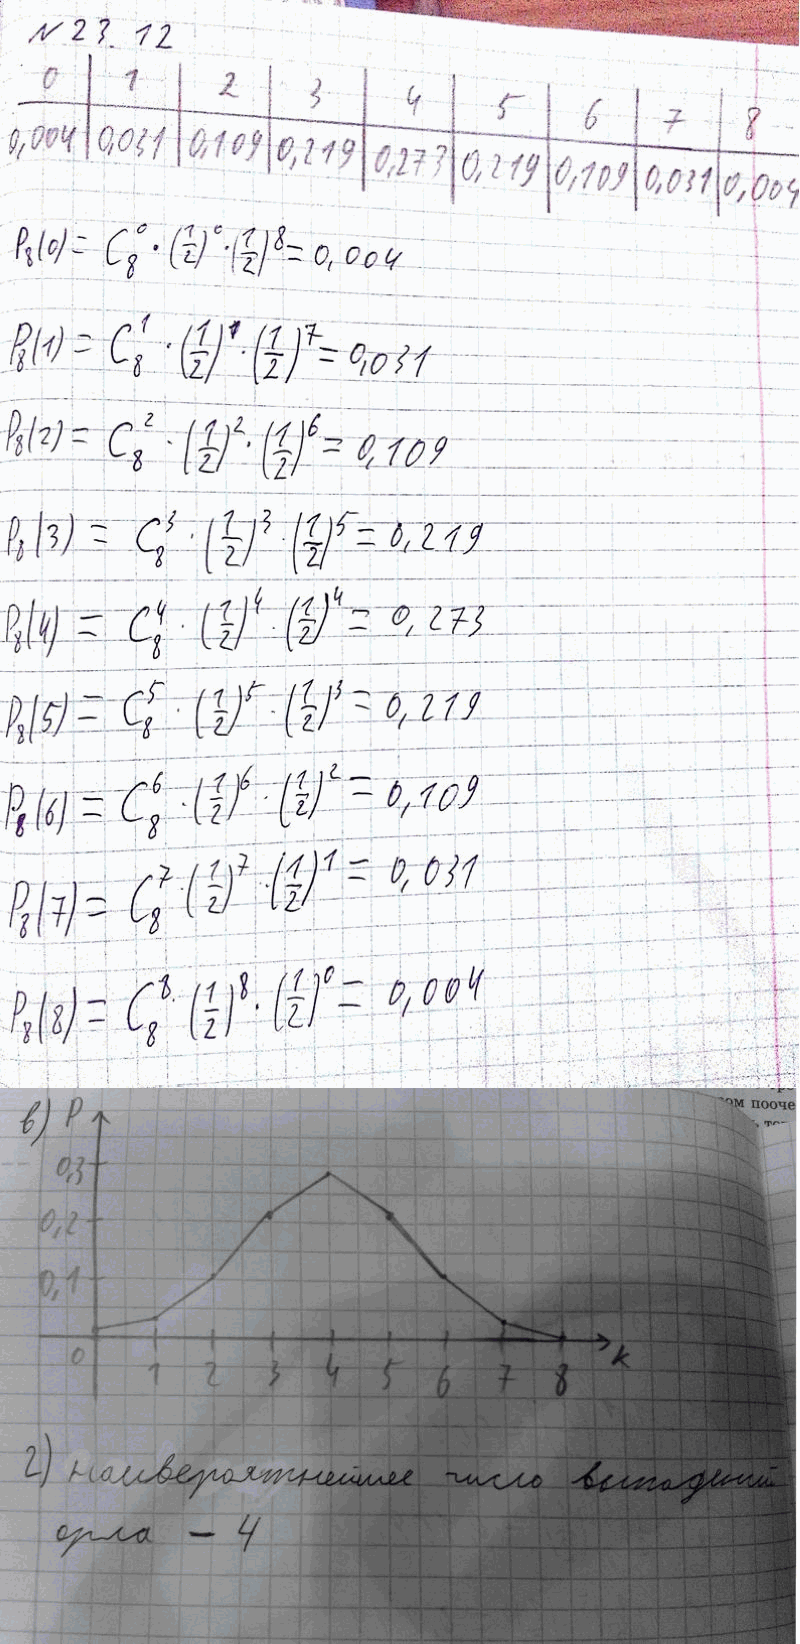 N 23. 12
0 1 2 3 4 5 6 7 8
0,004 0,031 0,109 0,219 0,273 0,219 0,109 0,031 0,004
P₈(0) = C₈⁰ · (1/2)⁰ · (1/2)⁸ = 0,004
P₈(1) = C₈¹ · (1/2)¹ · (1/2)⁷ = 0,031
P₈(2) = C₈² · (1/2)² · (1/2)⁶ = 0,109
P₈(3) = C₈³ · (1/2)³ · (1/2)⁵ = 0,219
P₈(4) = C₈⁴ · (1/2)⁴ · (1/2)⁴ = 0,273
P₈(5) = C₈⁵ · (1/2)⁵ · (1/2)³ = 0,219
P₈(6) = C₈⁶ · (1/2)⁶ · (1/2)² = 0,109
P₈(7) = C₈⁷ · (1/2)⁷ · (1/2)¹ = 0,031
P₈(8) = C₈⁸ · (1/2)⁸ · (1/2)⁰ = 0,004
ом пооче
в) P
0,3
0,2
0,1
0 1 2 3 4 5 6 7 8 k
г) наивероятнейшее число выпадений
орла – 4